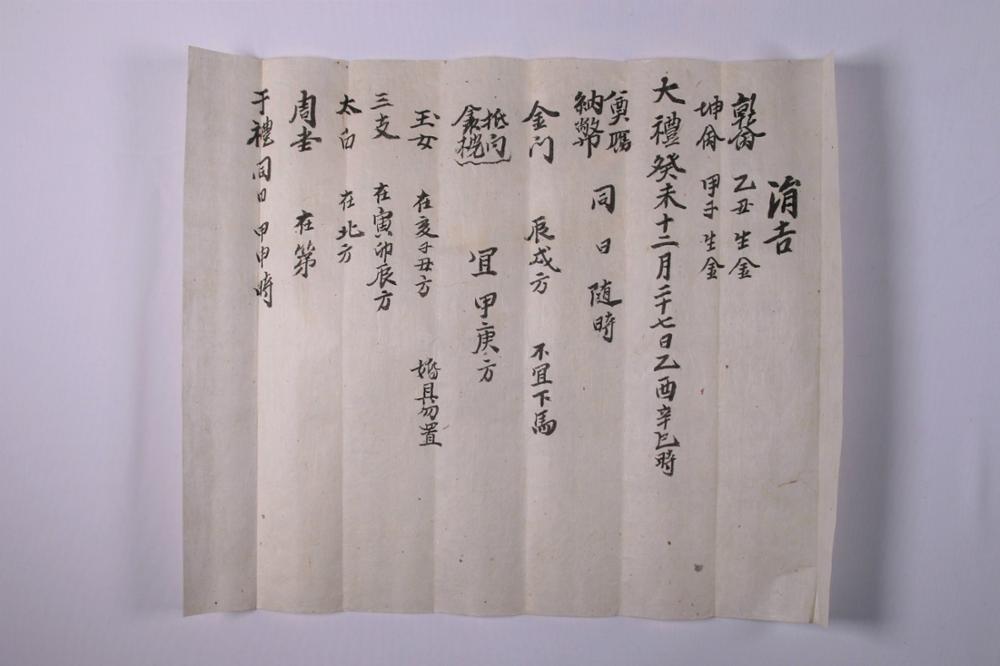 涓吉
乾命 乙丑生金
坤命 甲子生金
大禮癸未十二月二十七日乙酉辛巳時
奠鴈
納幣 同日隨時
金门 辰戌方 不宜下馬
宜甲庚方
玉女 在亥子丑方 婚具勿置
三支 在寅卯辰方
太白 在北方
周堂 在第
于禮同日甲申時